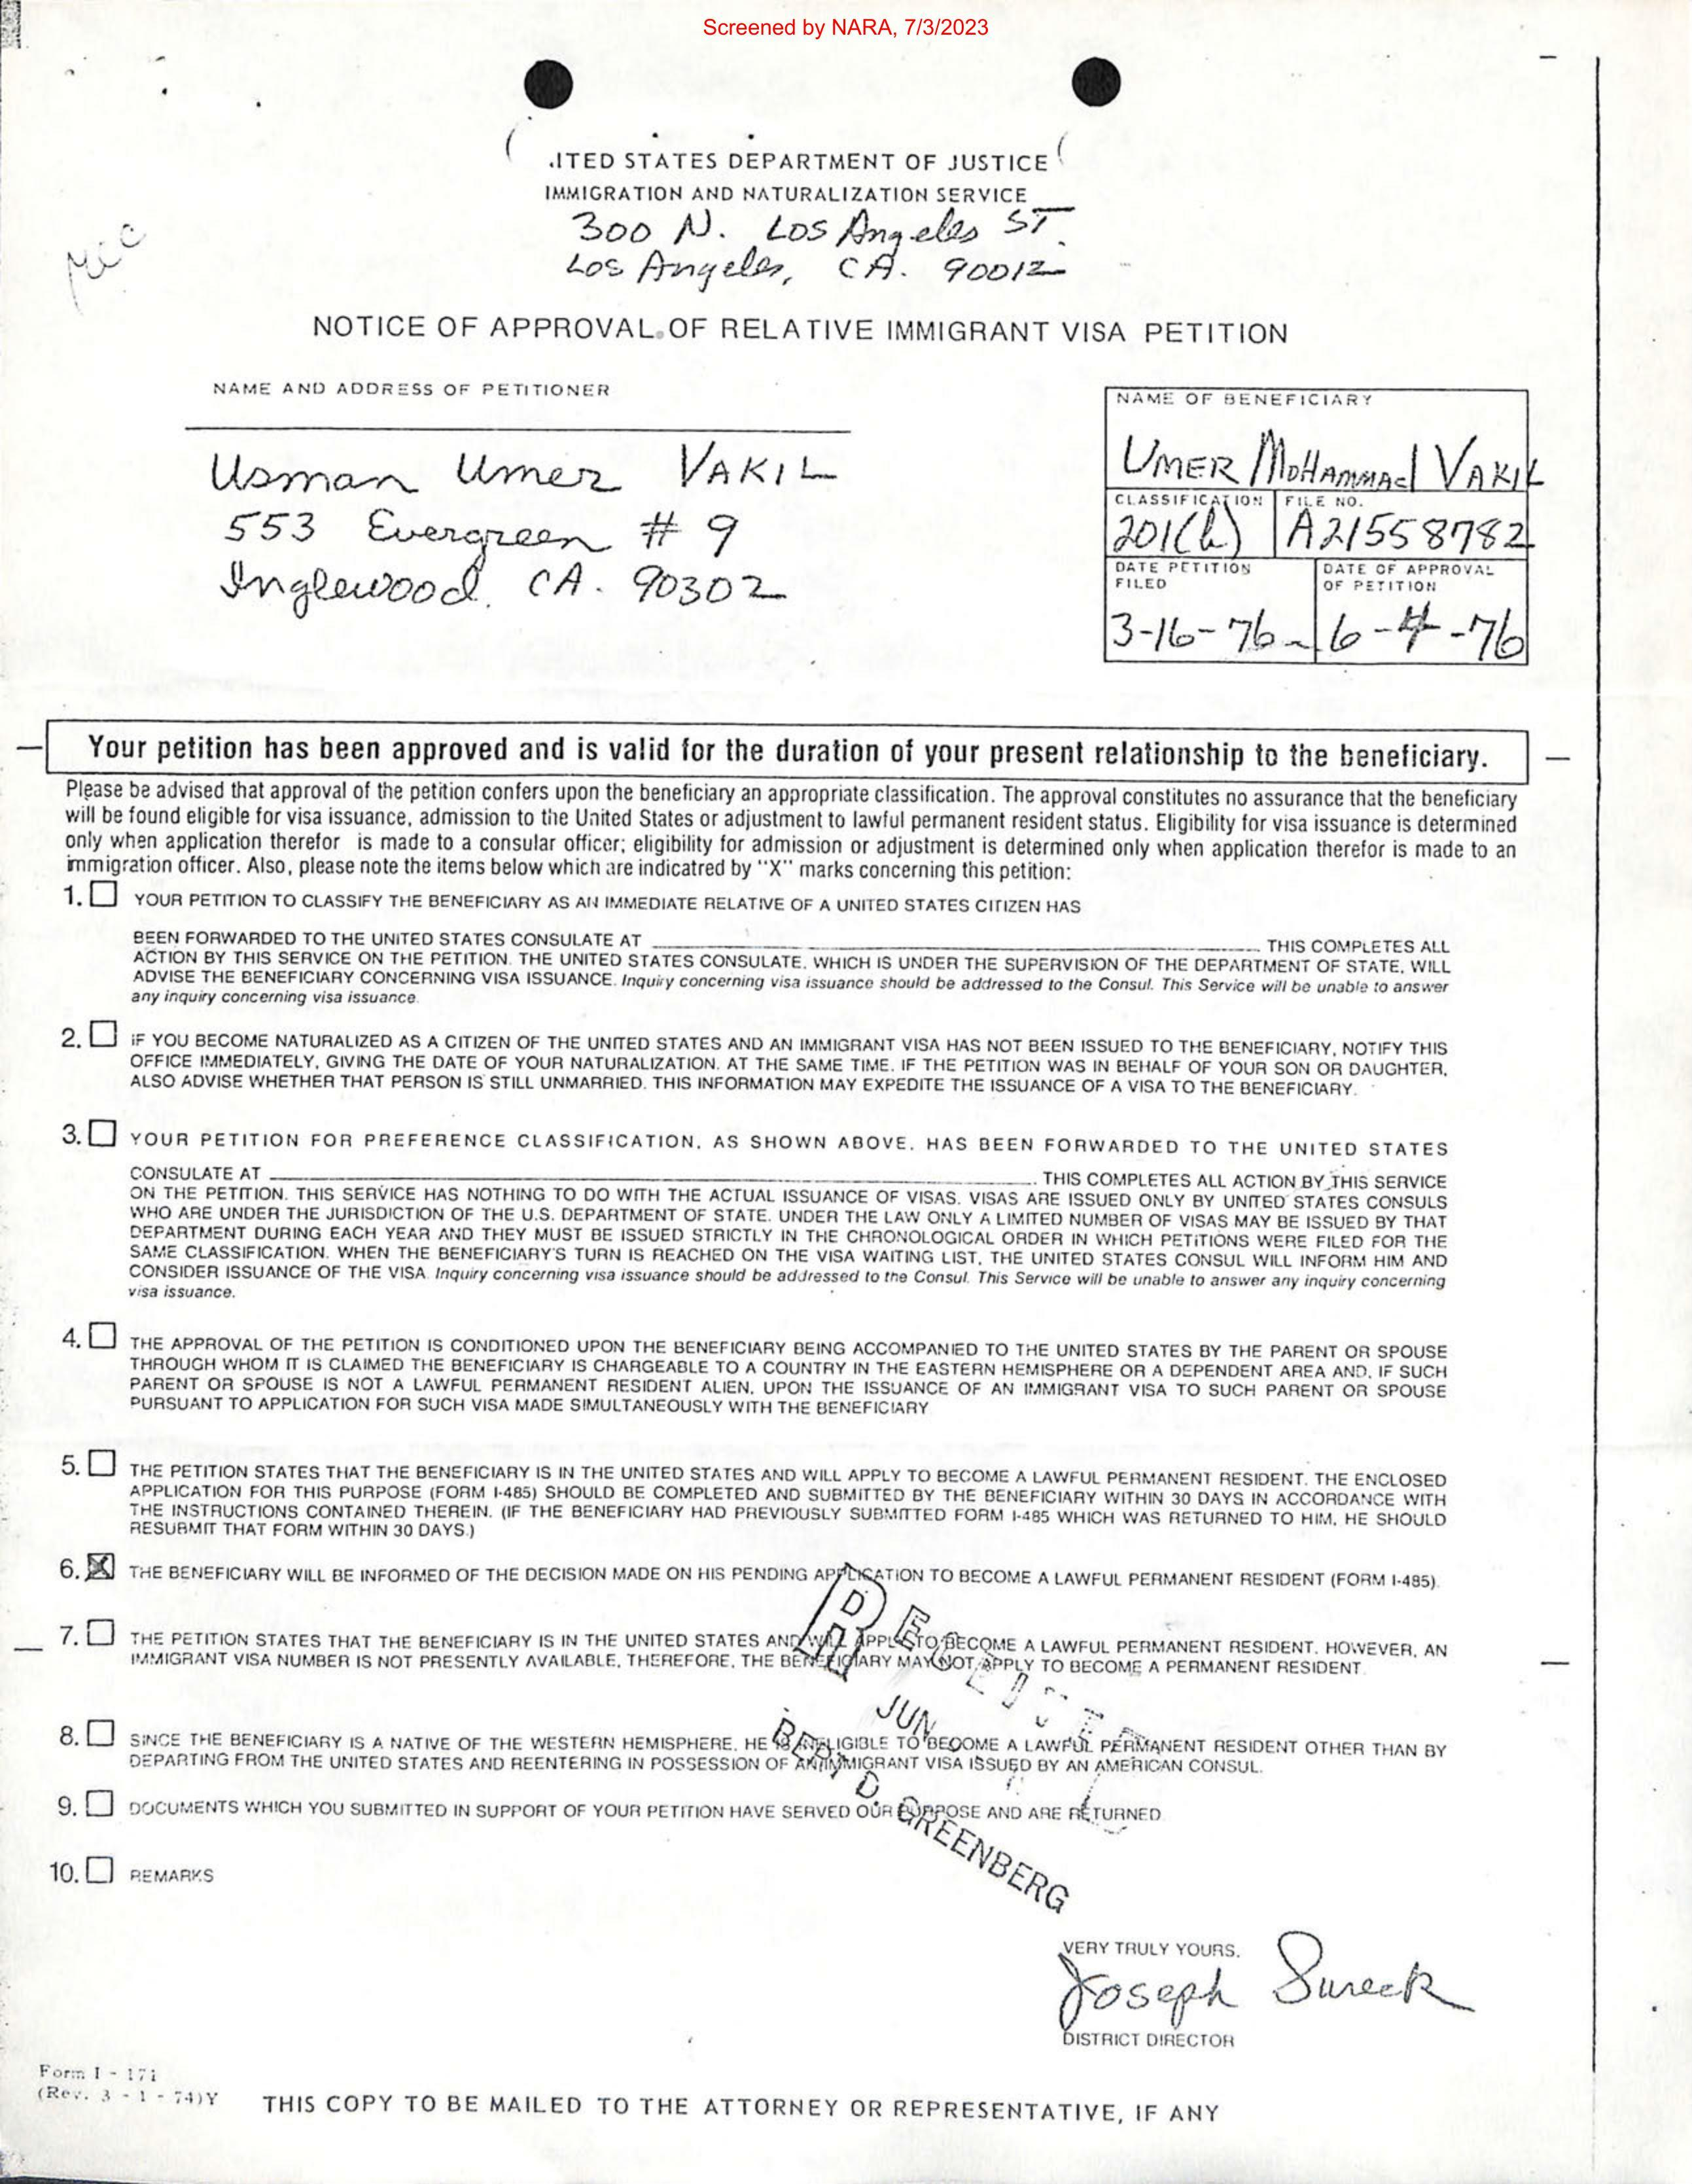 Screened by NARA, 7/3/2023
.ITED STATES DEPARTMENT OF JUSTICE
IMMIGRATION AND NATURALIZATION SERVICE
300 N. Los Angeles ST.
Los Angeles, CA. 90012
NOTICE OF APPROVAL OF RELATIVE IMMIGRANT VISA PETITION
NAME AND ADDRESS OF PETITIONER
Usman Umer VAKIL
553 Evergreen # 9
Inglewood, CA. 90302
NAME OF BENEFICIARY
UMER MOHAMMAd VAKIL
CLASSIFICATION
201(b)
FILE NO.
A21558782
DATE PETITION
FILED
3-16-76
DATE OF APPROVAL
OF PETITION
6-4-76
Your petition has been approved and is valid for the duration of your present relationship to the beneficiary.
Please be advised that approval of the petition confers upon the beneficiary an appropriate classification. The approval constitutes no assurance that the beneficiary
will be found eligible for visa issuance, admission to the United States or adjustment to lawful permanent resident status. Eligibility for visa issuance is determined
only when application therefor is made to a consular officer; eligibility for admission or adjustment is determined only when application therefor is made to an
immigration officer. Also, please note the items below which are indicatred by "X" marks concerning this petition:
1. YOUR PETITION TO CLASSIFY THE BENEFICIARY AS AN IMMEDIATE RELATIVE OF A UNITED STATES CITIZEN HAS
BEEN FORWARDED TO THE UNITED STATES CONSULATE AT THIS COMPLETES ALL
ACTION BY THIS SERVICE ON THE PETITION. THE UNITED STATES CONSULATE, WHICH IS UNDER THE SUPERVISION OF THE DEPARTMENT OF STATE, WILL
ADVISE THE BENEFICIARY CONCERNING VISA ISSUANCE. Inquiry concerning visa issuance should be addressed to the Consul. This Service will be unable to answer
any inquiry concerning visa issuance.
2. IF YOU BECOME NATURALIZED AS A CITIZEN OF THE UNITED STATES AND AN IMMIGRANT VISA HAS NOT BEEN ISSUED TO THE BENEFICIARY, NOTIFY THIS
OFFICE IMMEDIATELY, GIVING THE DATE OF YOUR NATURALIZATION. AT THE SAME TIME, IF THE PETITION WAS IN BEHALF OF YOUR SON OR DAUGHTER,
ALSO ADVISE WHETHER THAT PERSON IS STILL UNMARRIED. THIS INFORMATION MAY EXPEDITE THE ISSUANCE OF A VISA TO THE BENEFICIARY.
3. YOUR PETITION FOR PREFERENCE CLASSIFICATION, AS SHOWN ABOVE, HAS BEEN FORWARDED TO THE UNITED STATES
CONSULATE AT . THIS COMPLETES ALL ACTION BY THIS SERVICE
ON THE PETITION. THIS SERVICE HAS NOTHING TO DO WITH THE ACTUAL ISSUANCE OF VISAS. VISAS ARE ISSUED ONLY BY UNITED STATES CONSULS
WHO ARE UNDER THE JURISDICTION OF THE U.S. DEPARTMENT OF STATE. UNDER THE LAW ONLY A LIMITED NUMBER OF VISAS MAY BE ISSUED BY THAT
DEPARTMENT DURING EACH YEAR AND THEY MUST BE ISSUED STRICTLY IN THE CHRONOLOGICAL ORDER IN WHICH PETITIONS WERE FILED FOR THE
SAME CLASSIFICATION. WHEN THE BENEFICIARY'S TURN IS REACHED ON THE VISA WAITING LIST, THE UNITED STATES CONSUL WILL INFORM HIM AND
CONSIDER ISSUANCE OF THE VISA. Inquiry concerning visa issuance should be addressed to the Consul. This Service will be unable to answer any inquiry concerning
visa issuance.
4. THE APPROVAL OF THE PETITION IS CONDITIONED UPON THE BENEFICIARY BEING ACCOMPANIED TO THE UNITED STATES BY THE PARENT OR SPOUSE
THROUGH WHOM IT IS CLAIMED THE BENEFICIARY IS CHARGEABLE TO A COUNTRY IN THE EASTERN HEMISPHERE OR A DEPENDENT AREA AND, IF SUCH
PARENT OR SPOUSE IS NOT A LAWFUL PERMANENT RESIDENT ALIEN, UPON THE ISSUANCE OF AN IMMIGRANT VISA TO SUCH PARENT OR SPOUSE
PURSUANT TO APPLICATION FOR SUCH VISA MADE SIMULTANEOUSLY WITH THE BENEFICIARY
5. THE PETITION STATES THAT THE BENEFICIARY IS IN THE UNITED STATES AND WILL APPLY TO BECOME A LAWFUL PERMANENT RESIDENT. THE ENCLOSED
APPLICATION FOR THIS PURPOSE (FORM I-485) SHOULD BE COMPLETED AND SUBMITTED BY THE BENEFICIARY WITHIN 30 DAYS IN ACCORDANCE WITH
THE INSTRUCTIONS CONTAINED THEREIN. (IF THE BENEFICIARY HAD PREVIOUSLY SUBMITTED FORM I-485 WHICH WAS RETURNED TO HIM, HE SHOULD
RESUBMIT THAT FORM WITHIN 30 DAYS.)
6. X THE BENEFICIARY WILL BE INFORMED OF THE DECISION MADE ON HIS PENDING APPLICATION TO BECOME A LAWFUL PERMANENT RESIDENT (FORM I-485).
7. THE PETITION STATES THAT THE BENEFICIARY IS IN THE UNITED STATES AND WILL APPLY TO BECOME A LAWFUL PERMANENT RESIDENT. HOWEVER, AN
IMMIGRANT VISA NUMBER IS NOT PRESENTLY AVAILABLE, THEREFORE, THE BENEFICIARY MAY NOT APPLY TO BECOME A PERMANENT RESIDENT.
JUN
8. SINCE THE BENEFICIARY IS A NATIVE OF THE WESTERN HEMISPHERE, HE IS INELIGIBLE TO BECOME A LAWFUL PERMANENT RESIDENT OTHER THAN BY
DEPARTING FROM THE UNITED STATES AND REENTERING IN POSSESSION OF AN IMMIGRANT VISA ISSUED BY AN AMERICAN CONSUL.
9. DOCUMENTS WHICH YOU SUBMITTED IN SUPPORT OF YOUR PETITION HAVE SERVED OUR PURPOSE AND ARE RETURNED.
D. GREENBERG
10. REMARKS
VERY TRULY YOURS,
Joseph Sureck
DISTRICT DIRECTOR
Form I - 171
(Rev. 3 - 1 - 74)Y
THIS COPY TO BE MAILED TO THE ATTORNEY OR REPRESENTATIVE, IF ANY